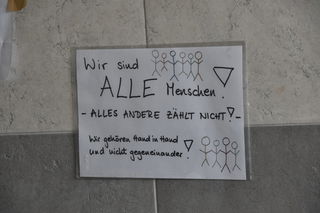 Wir sind
ALLE Menschen!
- ALLES ANDERE ZÄHLT NICHT! -
Wir gehören Hand in Hand
und nicht gegeneinander!